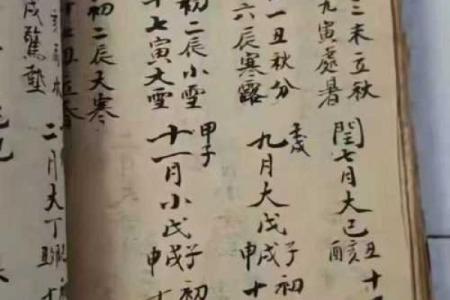 三未立秋
九寅處暑
閏七月大己丑亥十
一丑秋分
六辰寒露
壬戌
九月大戊子申戌初十
初二辰小雪
十七寅大雪
甲子
十一月小戊子申戌初十
初二辰大寒
丑立春
二月大丁
戌驚蟄